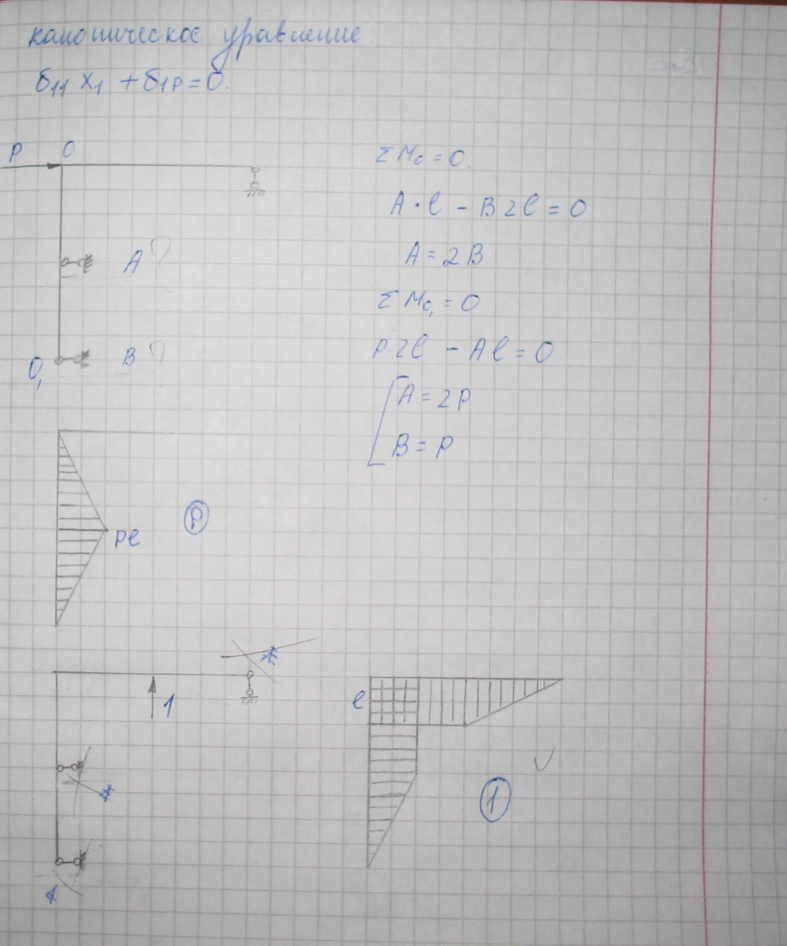 каноническое уравнение:
δ₁₁ X₁ + δ₁P = 0.
P O
A?
B?
O₁
ΣMₒ = 0.
A·l - B2l = 0
A = 2B
ΣMₒ₁ = 0
P2l - Al = 0
A = 2P
B = P
Pl
P
1
l
1